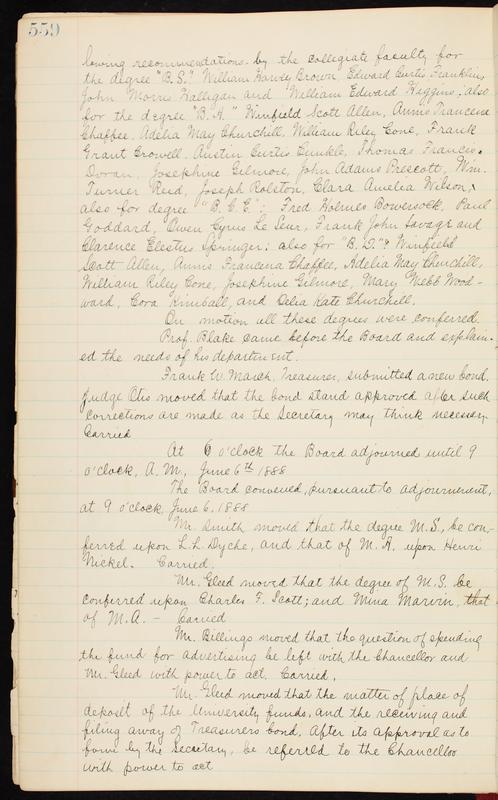 559
lowing recommendations by the collegiate faculty for
the degree "B.S." William Harvey Brown, Edward Curtis Franklin,
John Morris Halligan and William Edward Higgins; also
for the degree "B.A." Winfield Scott Allen, Annis Francena
Chaffee, Adelia May Churchill, William Riley Cone, Frank
Grant Crowell, Austin Curtis Cunkle, Thomas Francis
Doran, Josephine Gilmore, John Adams Prescott, Wm.
Turner Reid, Joseph Rolston, Clara Amelia Wilson;
also for degree "B.C.E." Fred Holmes Bowersock, Paul
Goddard, Owen Cyrus Le Seur, Frank John Savage and
Clarence Electus Springer; also for "B.D." Winfield
Scott Allen, Annis Francena Chaffee, Adelia May Churchill,
William Riley Cone, Josephine Gilmore, Mary Webb Wood-
ward, Cora Kimball, and Celia Kate Churchill.
On motion all these degrees were conferred.
Prof. Blake came before the Board and explain-
ed the needs of his department.
Frank W. March, Treasurer, submitted a new bond.
Judge Otis moved that the bond stand approved after such
corrections are made as the Secretary may think necessary
Carried
At 6 o'clock the Board adjourned until 9
o'clock, A.M., June 6th 1888
The Board convened, pursuant to adjournment,
at 9 o'clock June 6, 1888
Mr. Smith moved that the degree M.S., be con-
ferred upon L.L. Dyche, and that of M.A. upon Henri
Nickel. Carried.
Mr. Gleed moved that the degree of M.S. be
conferred upon Charles F. Scott; and Mina Marvin, that
of M.A. - Carried
Mr. Billings moved that the question of spending
the fund for advertising be left with the Chancellor and
Mr. Gleed with power to act. Carried.
Mr. Gleed moved that the matter of place of
deposit of the University funds, and the receiving and
filing away of Treasurers bond, after its approval as to
form by the Secretary, be referred to the Chancellor
with power to act